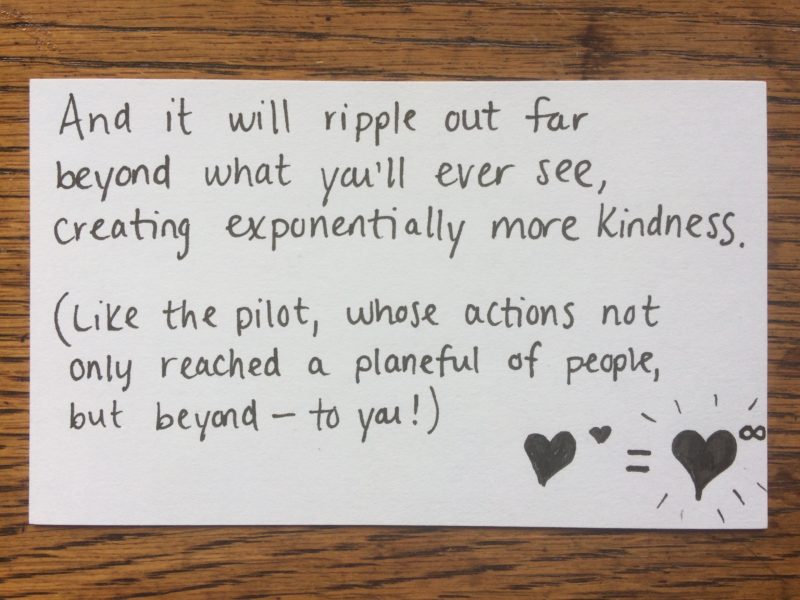 And it will ripple out far
beyond what you'll ever see,
creating exponentially more kindness.
(Like the pilot, whose actions not
only reached a planeful of people,
but beyond – to you!)
♥ ♥ = ♥ ∞